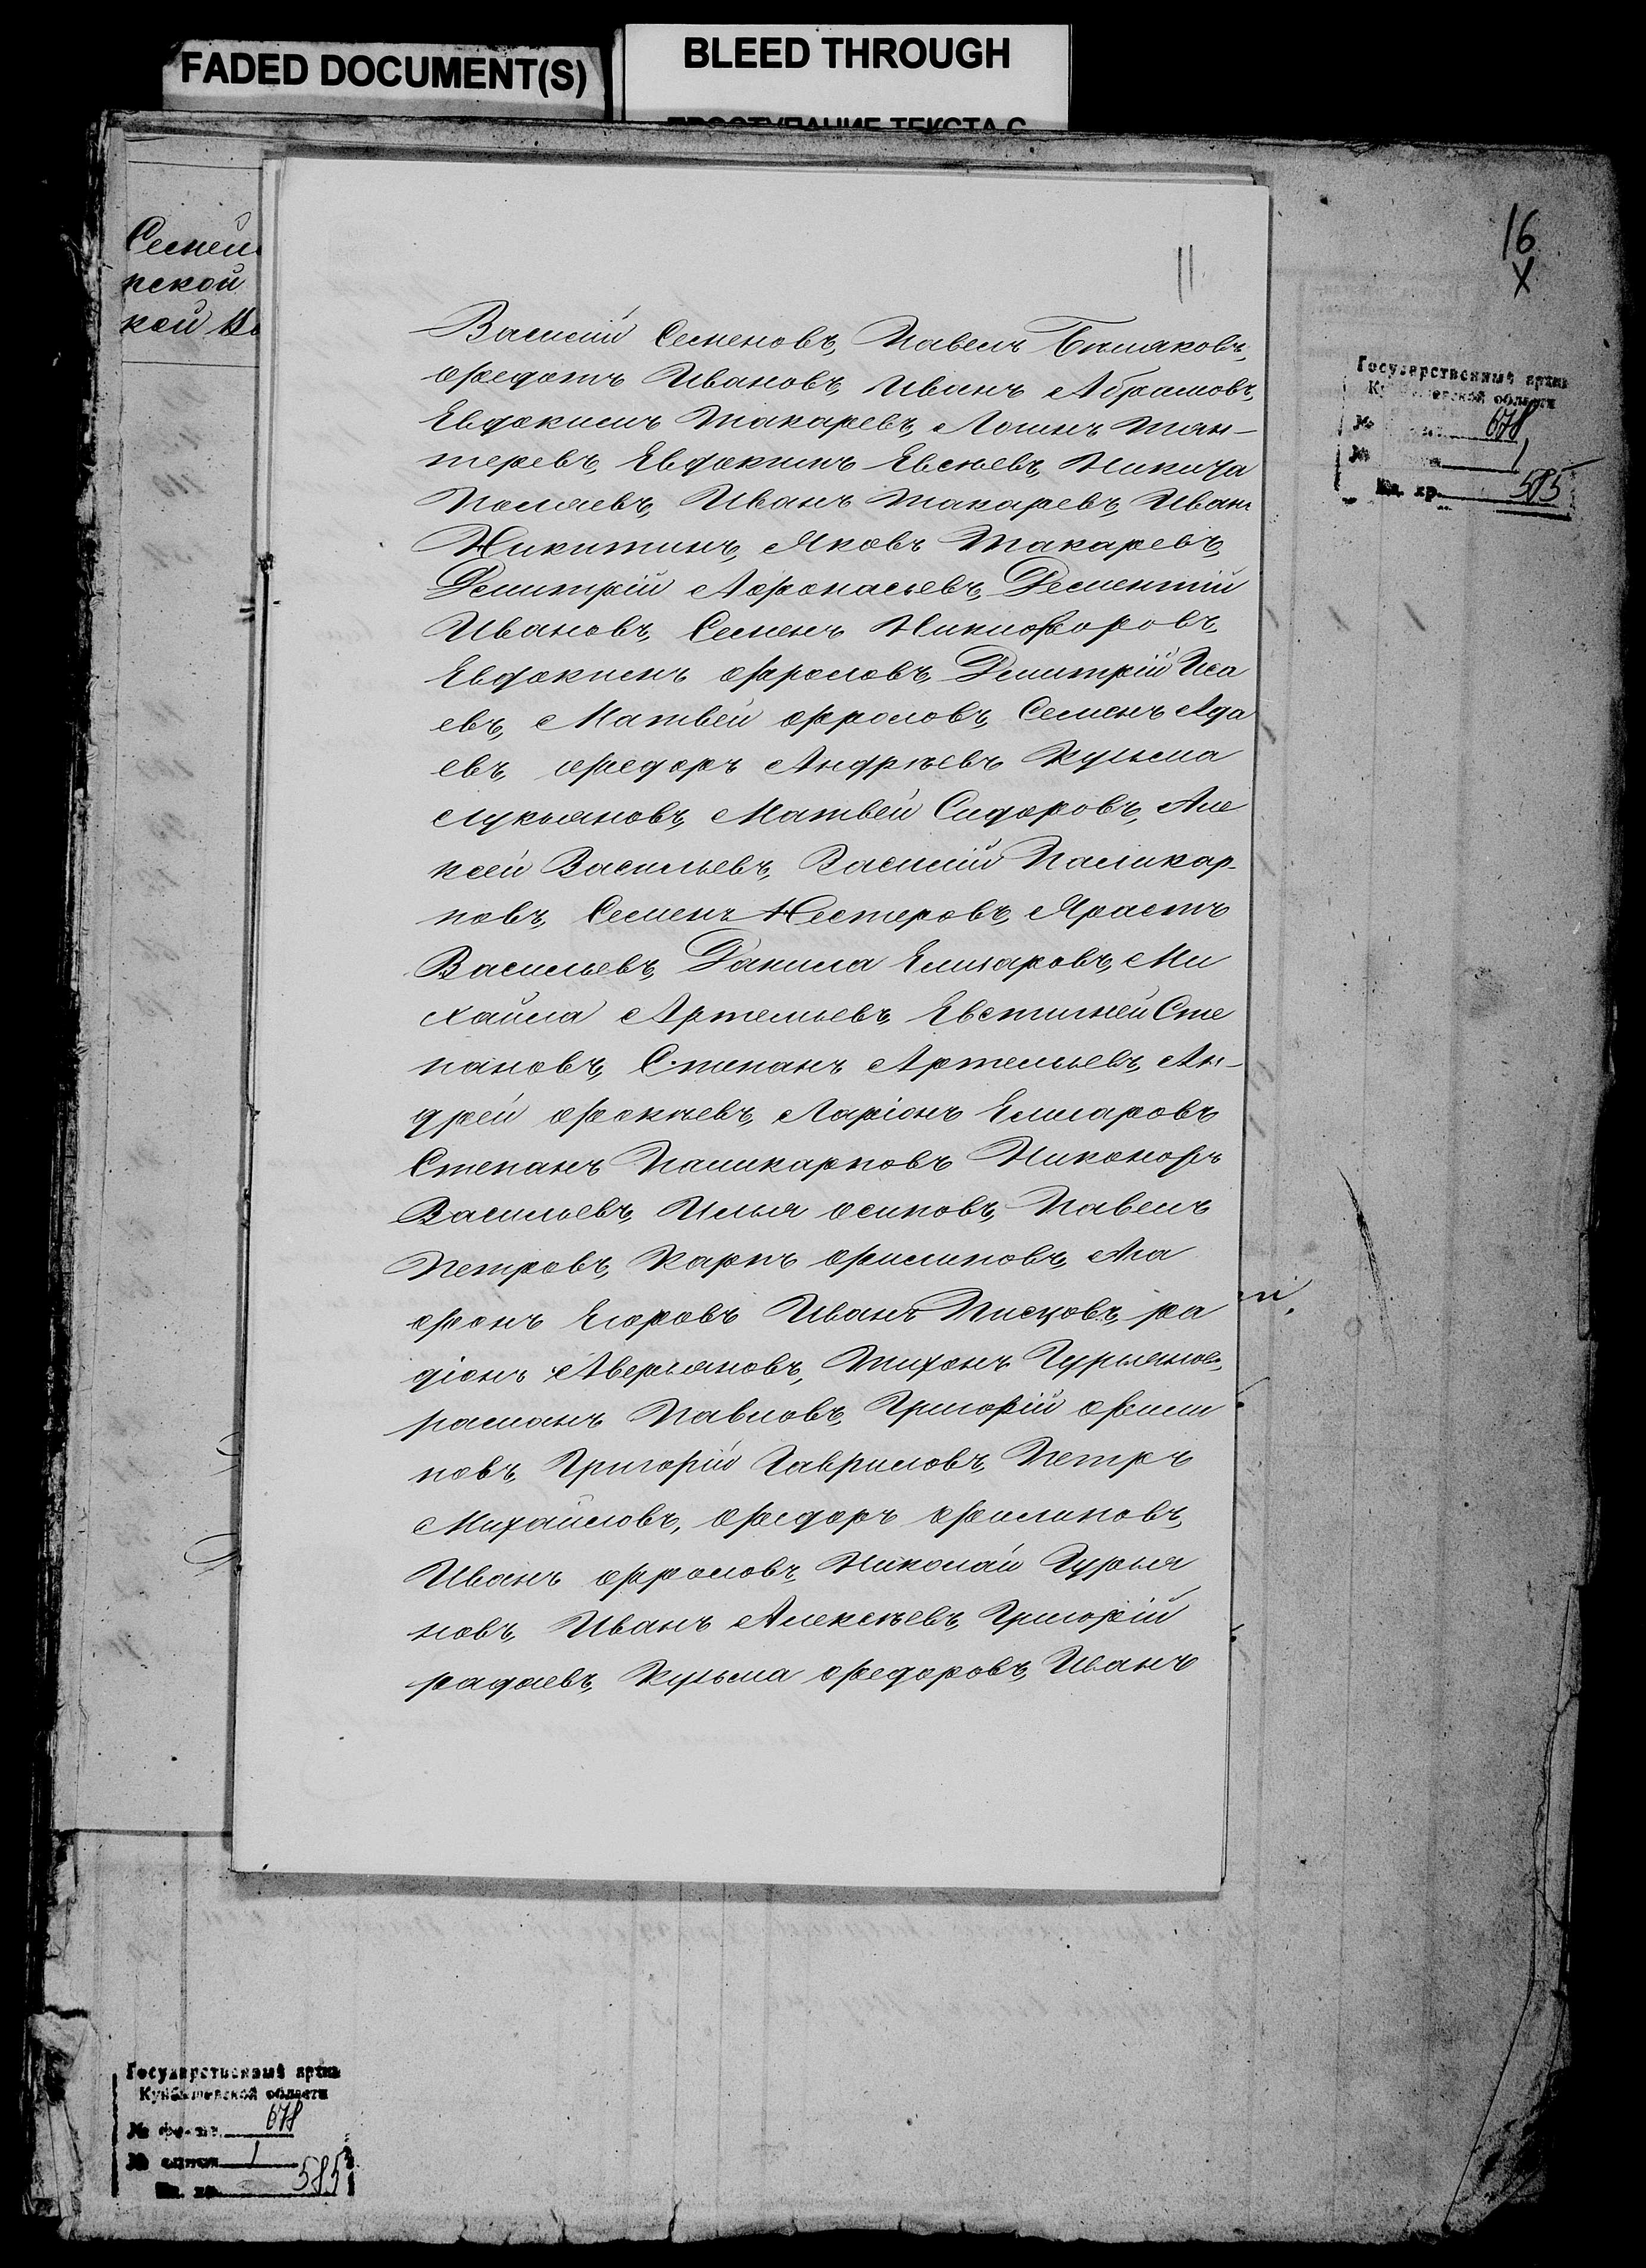 FADED DOCUMENT(S)
BLEED THROUGH
ПРОСТУПАНИЕ ТЕКСТА С
16
х
Семей
пской
кой Во
11
Василий Семеновъ, Павелъ Биляковъ,
Федотъ Ивановъ, Иванъ Абрамовъ,
Евдокимъ Макаревъ, Логинъ Пан-
теревъ, Евдокимъ Евсеевъ, Никита
Поляевъ, Иванъ Макаревъ, Иванъ
Никитинъ, Яковъ Макаревъ,
Демитрій Афонасьевъ, Дементій
Ивановъ, Семенъ Никифоровъ,
Евдокимъ Фроловъ, Демитрій Иса
евъ, Матвей Фроловъ, Семенъ Ада
евъ, Федоръ Андреевъ Кузьма
Лукьяновъ, Матвей Сидоровъ, Але
ксей Васильевъ, Василий Паликар-
повъ, Семенъ Нестеровъ, Ярастъ
Васильевъ, Данила Елизаровъ, Ми
хайла Артемьевъ, Евстигней Сте
пановъ, Степанъ Артемьевъ, Ан-
дрей Фокеевъ, Ларіонъ Елизаровъ
Степанъ Паликарповъ Никоноръ
Васильевъ, Илья Осиповъ, Павелъ
Петровъ, Карпъ Филиповъ, Ага
фонъ Егоровъ Иванъ Писцовъ, ра
діонъ Аверьяновъ, Тихонъ Гурьяновъ,
раманъ Павловъ, Григорій Фили
повъ, Григорій Гавриловъ, Петръ
Михайловъ, Федоръ Филиповъ,
Иванъ Фроловъ, Николай Гурья
новъ, Иванъ Алексеевъ, Григорій
радаевъ, Кузьма Федоровъ, Иванъ
Государственный архив
Куйбышевской области
№ 678
№ 1
Ед. хр. 585
Государственный архив
Куйбышевской области
№ фонда 678
№ описи 1
Ед. хр. 585